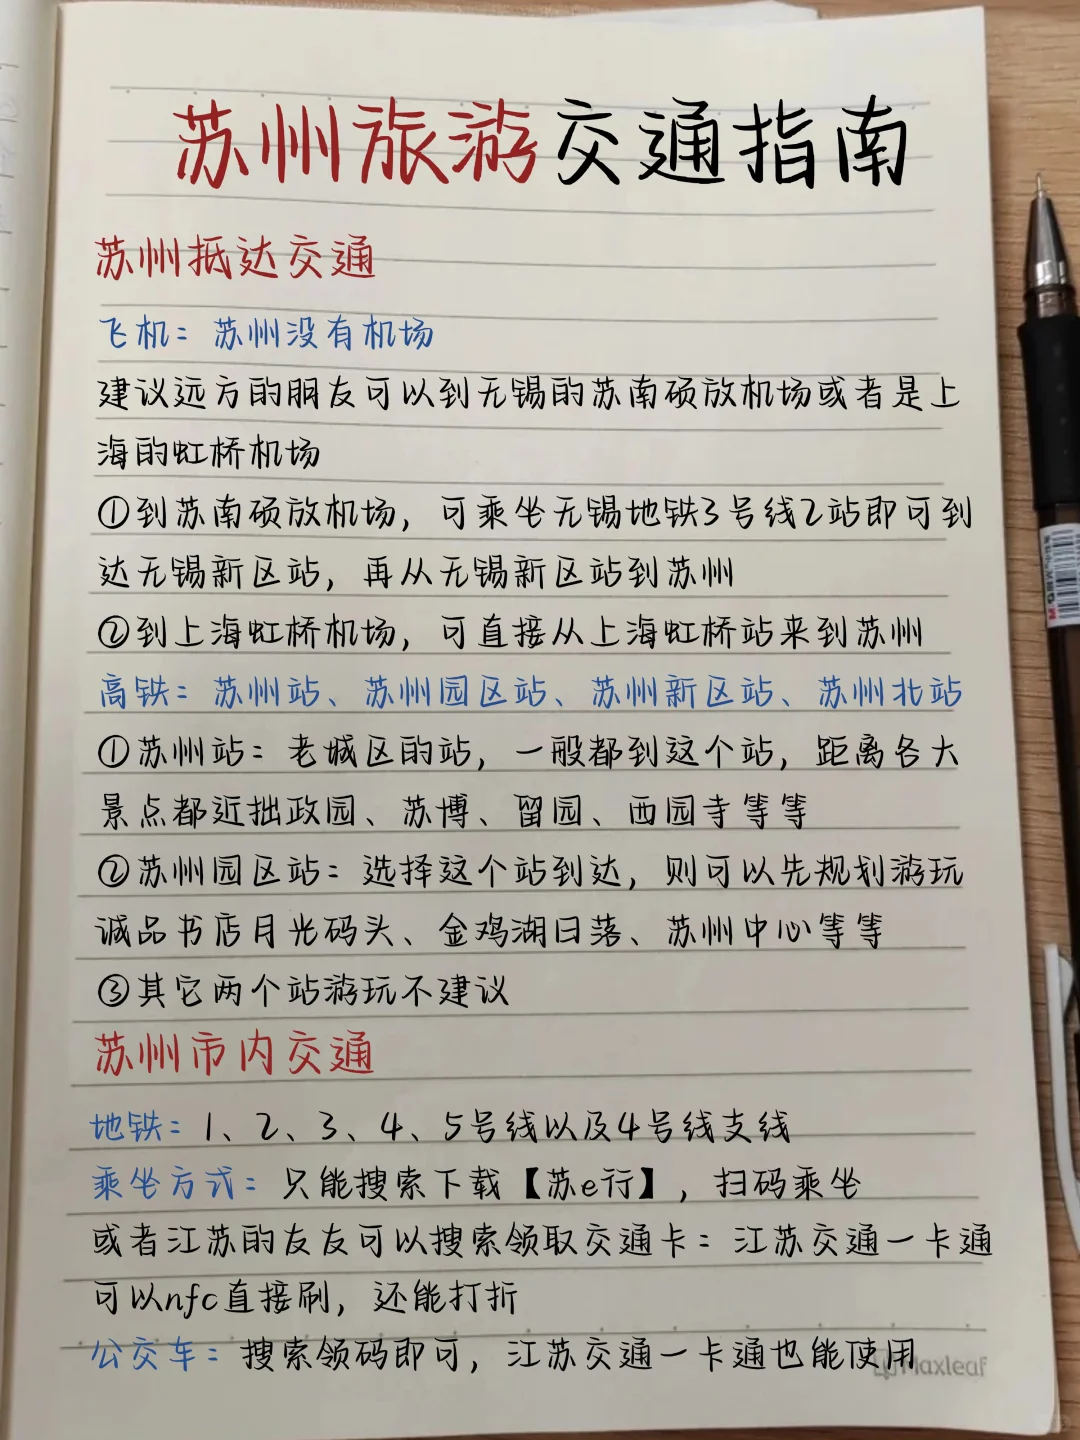 苏州旅游交通指南
苏州抵达交通
飞机：苏州没有机场
建议远方的朋友可以到无锡的苏南硕放机场或者是上
海的虹桥机场
①到苏南硕放机场，可乘坐无锡地铁3号线2站即可到
达无锡新区站，再从无锡新区站到苏州
②到上海虹桥机场，可直接从上海虹桥站来到苏州
高铁：苏州站、苏州园区站、苏州新区站、苏州北站
①苏州站：老城区的站，一般都到这个站，距离各大
景点都近拙政园、苏博、留园、西园寺等等
②苏州园区站：选择这个站到达，则可以先规划游玩
诚品书店月光码头、金鸡湖日落、苏州中心等等
③其它两个站游玩不建议
苏州市内交通
地铁：1、2、3、4、5号线以及4号线支线
乘坐方式：只能搜索下载【苏e行】，扫码乘坐
或者江苏的友友可以搜索领取交通卡：江苏交通一卡通
可以nfc直接刷，还能打折
公交车：搜索领码即可，江苏交通一卡通也能使用
Maxleaf